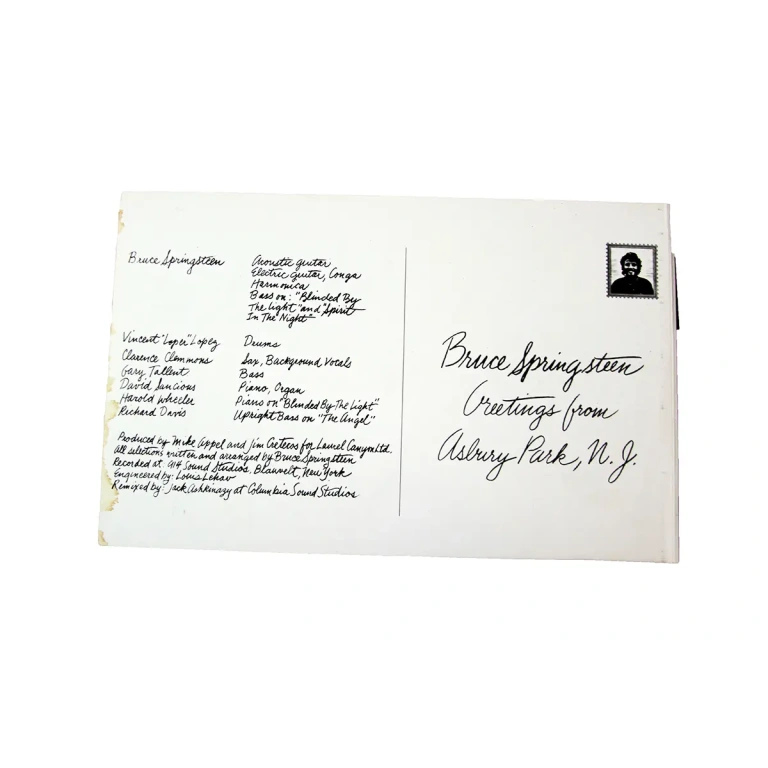 Bruce Springsteen Acoustic guitar
Electric guitar, Conga
Harmonica
Bass on: "Blinded By
The Light" and "Spirit
In The Night"
Vincent "Loper" Lopez Drums
Clarence Clemmons Sax, Background Vocals
Gary Tallent Bass
David Sancious Piano, Organ
Harold Wheeler Piano on "Blinded By The Light"
Richard Davis Upright Bass on "The Angel"
Produced by Mike Appel and Jim Cretecos for Laurel Canyon Ltd.
All selections written and arranged by Bruce Springsteen
Recorded at: 914 Sound Studios, Blauvelt, New York
Engineered by: Louis Lahav
Remixed by: Jack Ashkinazy at Columbia Sound Studios
Bruce Springsteen
Greetings from
Asbury Park, N. J.